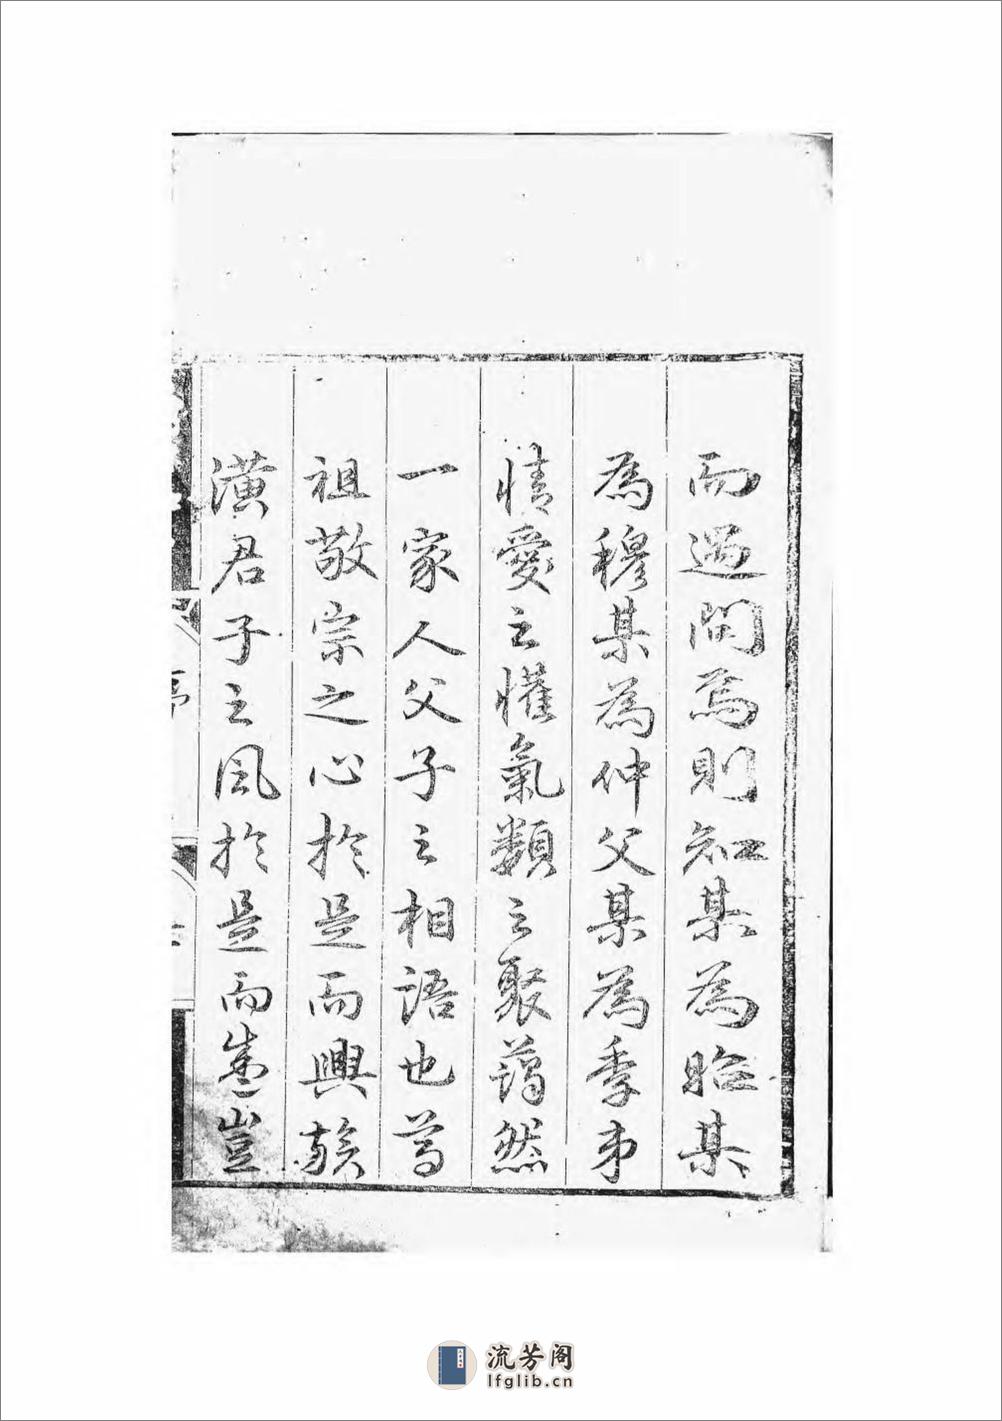 而過問焉則知某為昭某
為穆某為仲父某為季弟
情愛之懽氣類之聚藹然
一家人父子之相語也尊
祖敬宗之心於是而興族
潢君子之風於是而盛豈
序
流芳阁
lfglib.cn